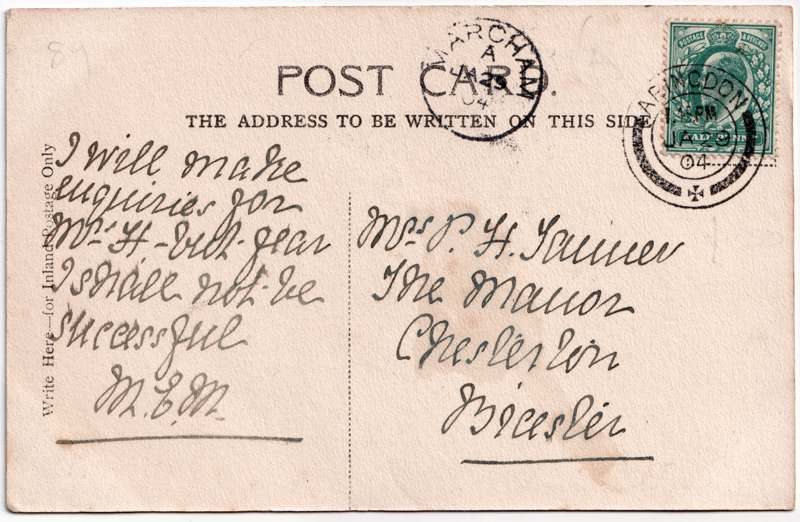 84
POST CARD.
THE ADDRESS TO BE WRITTEN ON THIS SIDE
MARCHAM
A
JA 29
04
POSTAGE & REVENUE
HALFPENNY
ABINGDON
PM
JA 29
04
Write Here—for Inland Postage Only
I will make
enquiries for
Mrs H - but fear
I shall not be
successful
M.E.M.
Mrs P. H. Tanner
The Manor
Chesterton
Bicester